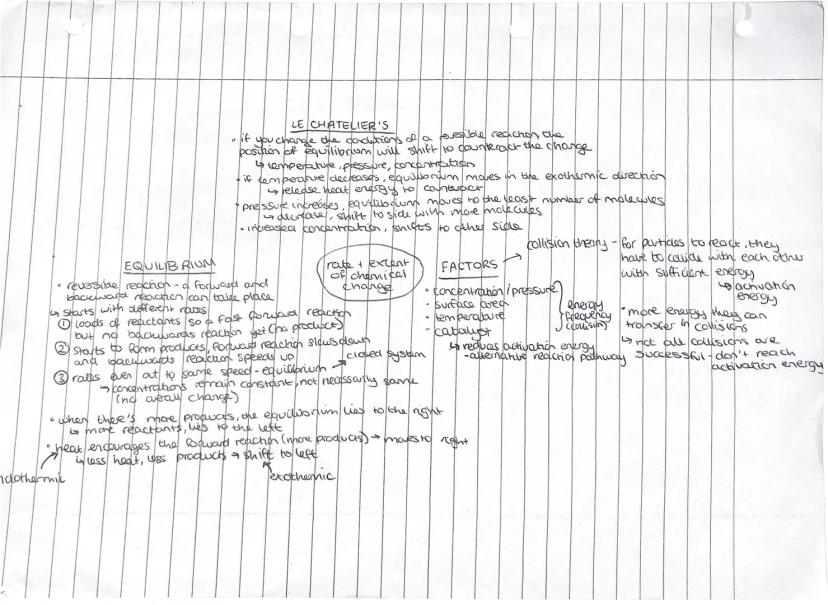 LE CHATELIER'S
• if you change the conditions of a reversible reaction, the
position of equilibrium will shift to counteract the change
↳ temperature, pressure, concentration
• if temperature decreases, equilibrium moves in the exothermic direction
↳ release heat energy to counteract
• pressure increases, equilibrium moves to the least number of molecules
↳ decrease, shift to side with more molecules
• increased concentration, shifts to other side
rate + extent
of chemical
change
EQUILIBRIUM
• reversible reaction - a forward and
backward reaction can take place
↳ starts with different rates
① loads of reactants so a fast forward reaction
but no backwards reaction yet (no product)
② starts to form products, forward reaction slows down
and backwards reaction speeds up
③ rates even at to same speed - equilibrium → closed system
↳ concentrations remain constant, not necessarily same
(no overall change)
• when there's more products, the equilibrium lies to the right
↳ more reactants, lies to the left
• heat encourages the forward reaction (more products) → moves to right
↳ less heat, less products → shift to left
ndothermic
exothermic
FACTORS
• concentration/pressure
• surface area
• temperature
• catalyst
↳ reduces activation energy
- alternative reaction pathway
energy
frequency
(collision)
collision theory - for particles to react, they
have to collide with each other
with sufficient energy
↳ activation
energy
• more energy they can
transfer in collisions
↳ not all collisions are
successful - don't reach
activation energy